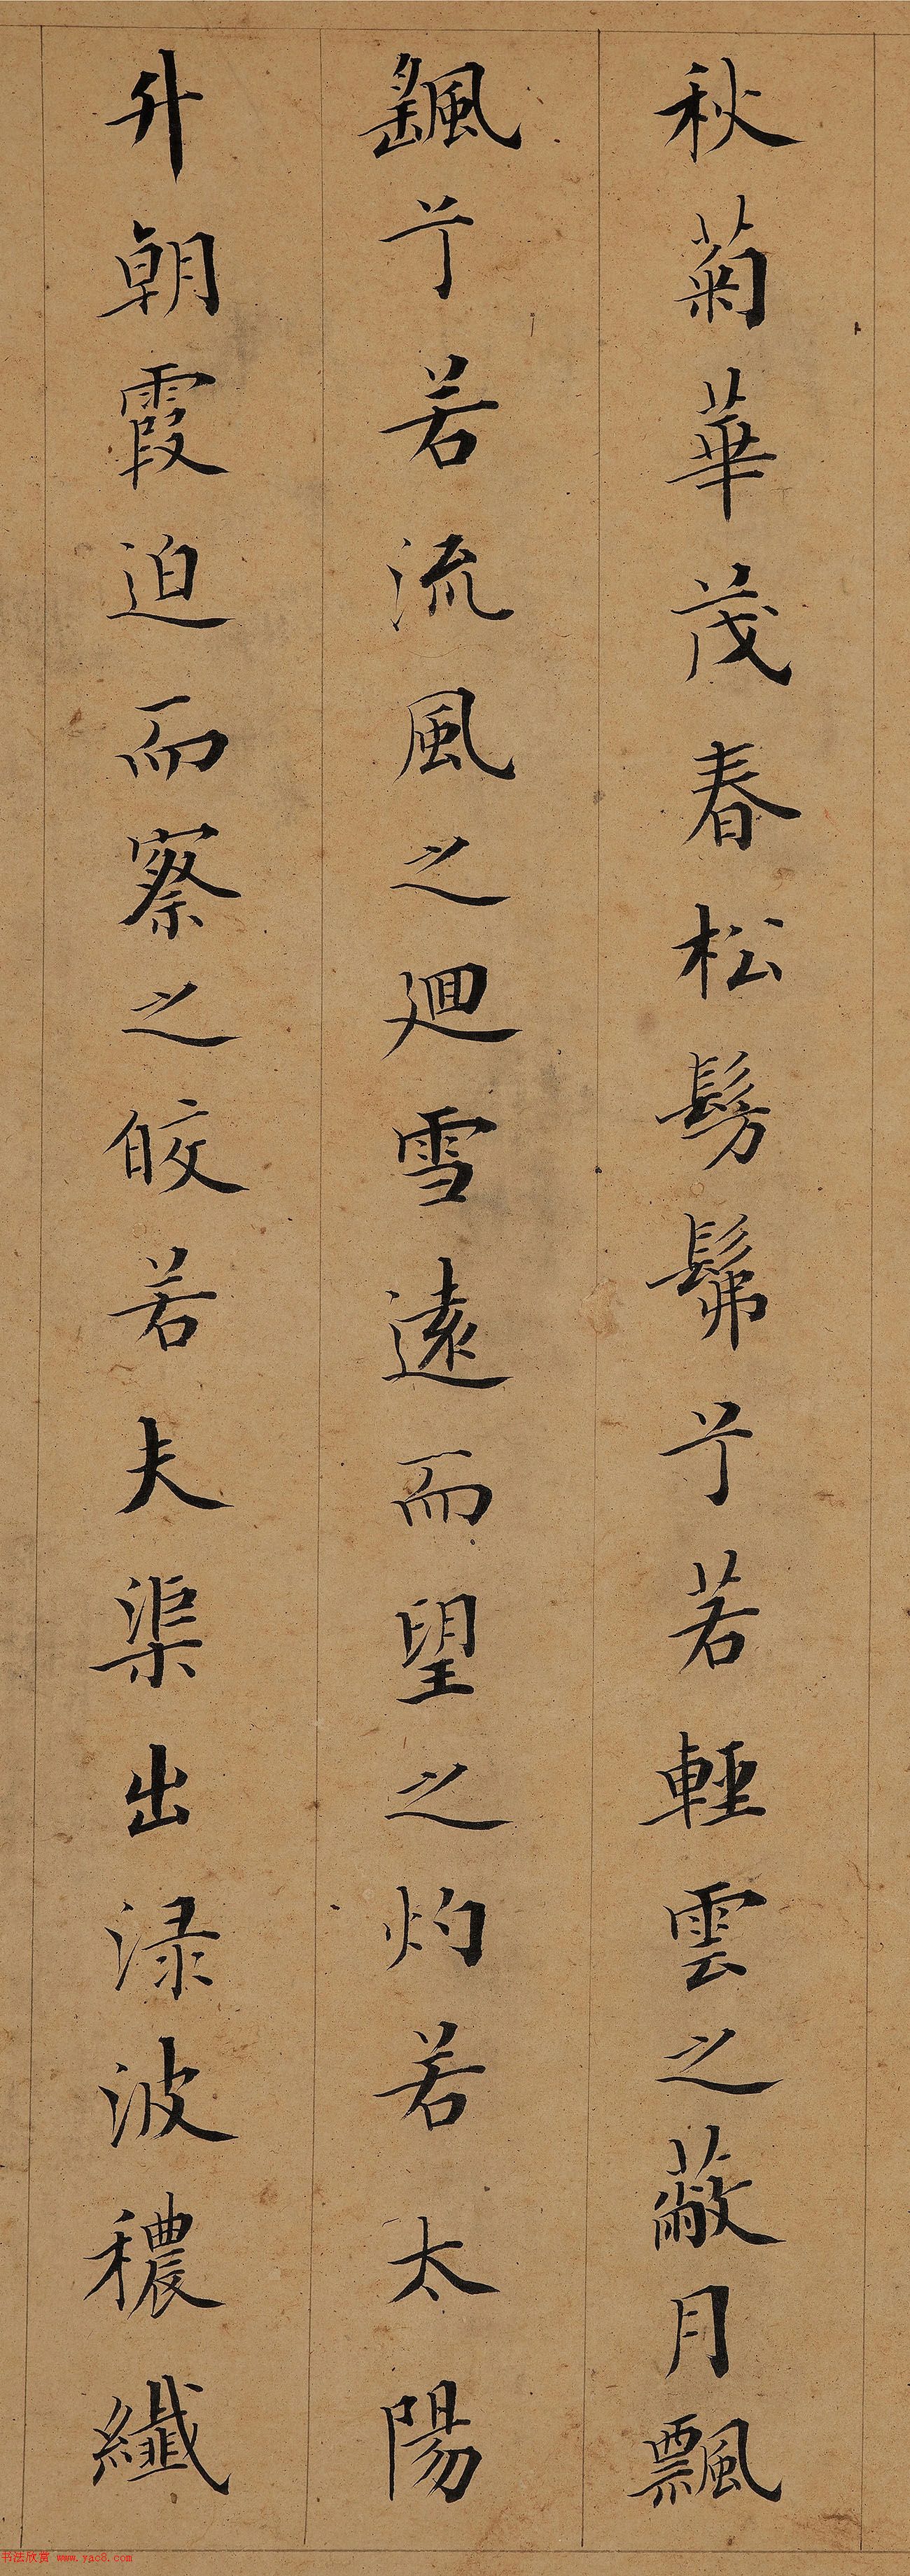 秋菊華茂春松髣髴兮若輕雲之蔽月飄
颻兮若流風之廻雪遠而望之灼若太陽
升朝霞迫而察之皎若夫渠出淥波穠纖
书法欣赏 www.yac8.com